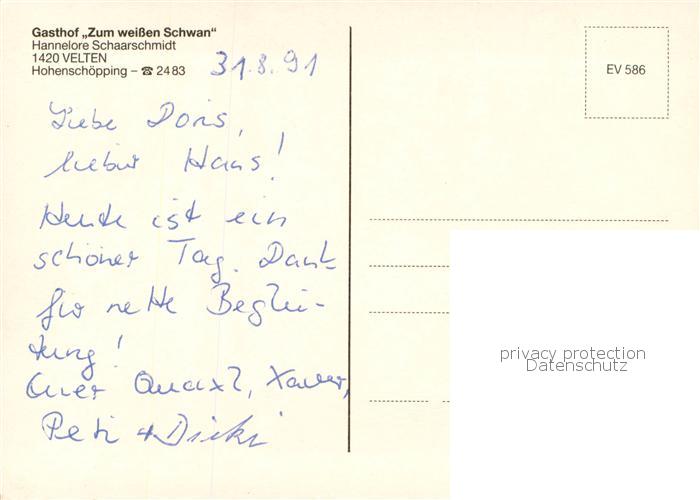 Gasthof „Zum weißen Schwan“
Hannelore Schaarschmidt
1420 VELTEN
Hohenschöpping – ☎ 24 83
31.8.91
EV 586
Liebe Doris,
lieber Hans!
Heute ist ein
schöner Tag. Dank
für nette Beglei-
tung!
Euer Xaver,
Peti + Dicki
privacy protection
Datenschutz